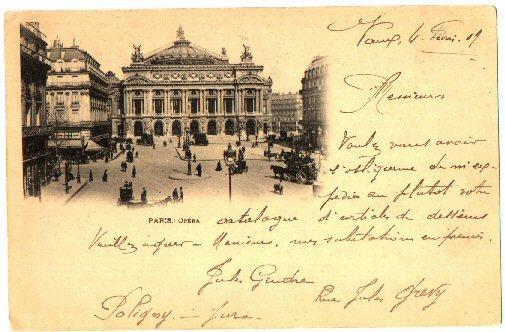 Vaux, 6 Févri. 09
Messieurs
Voulez vous avoir
l'obligeance de m'ex-
pédier au plutôt votre
PARIS. OPÉRA
catalogue d'articles de dessins
Veuillez agréer – Messieurs, mes salutations empressées.
Jules Gendre
Rue Jules Grévy
Poligny – Jura –